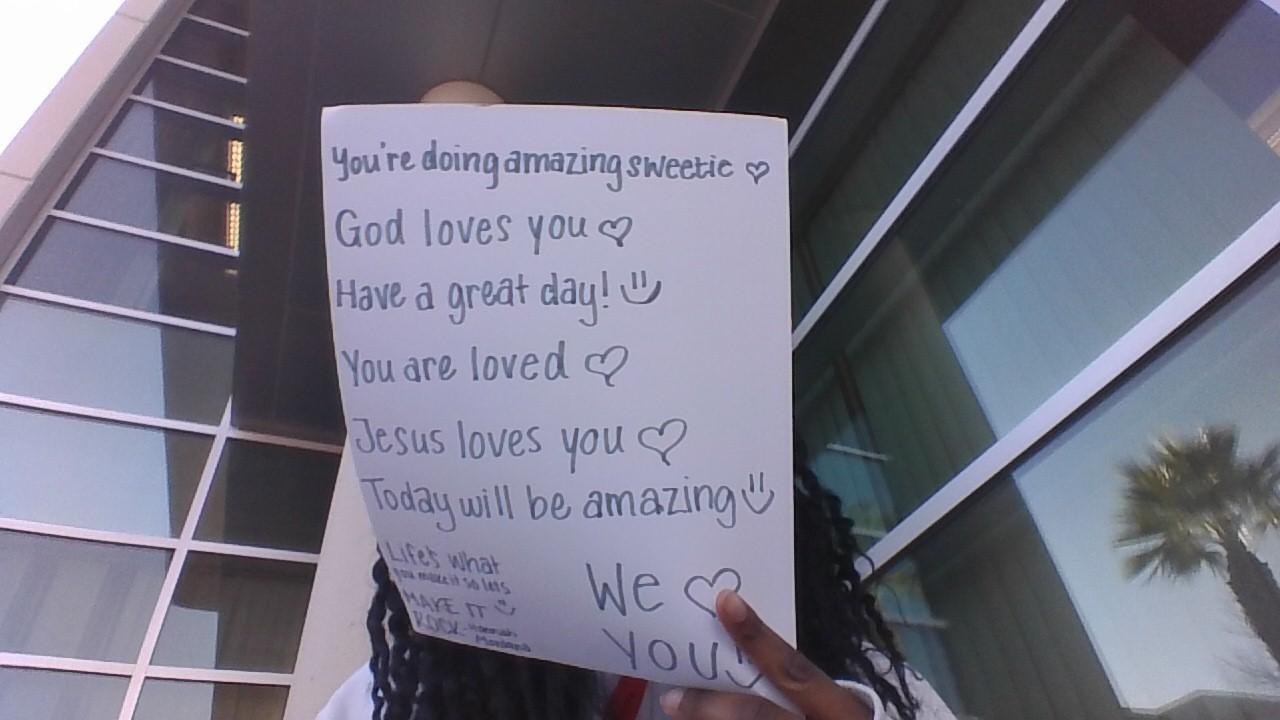 You're doing amazing sweetie ♡
God loves you ♡
Have a great day! :)
You are loved ♡
Jesus loves you ♡
Today will be amazing :)
Life's what
you make it so lets
MAKE IT :)
ROCK - Hannah
Montana
We ♡
YOU! :)